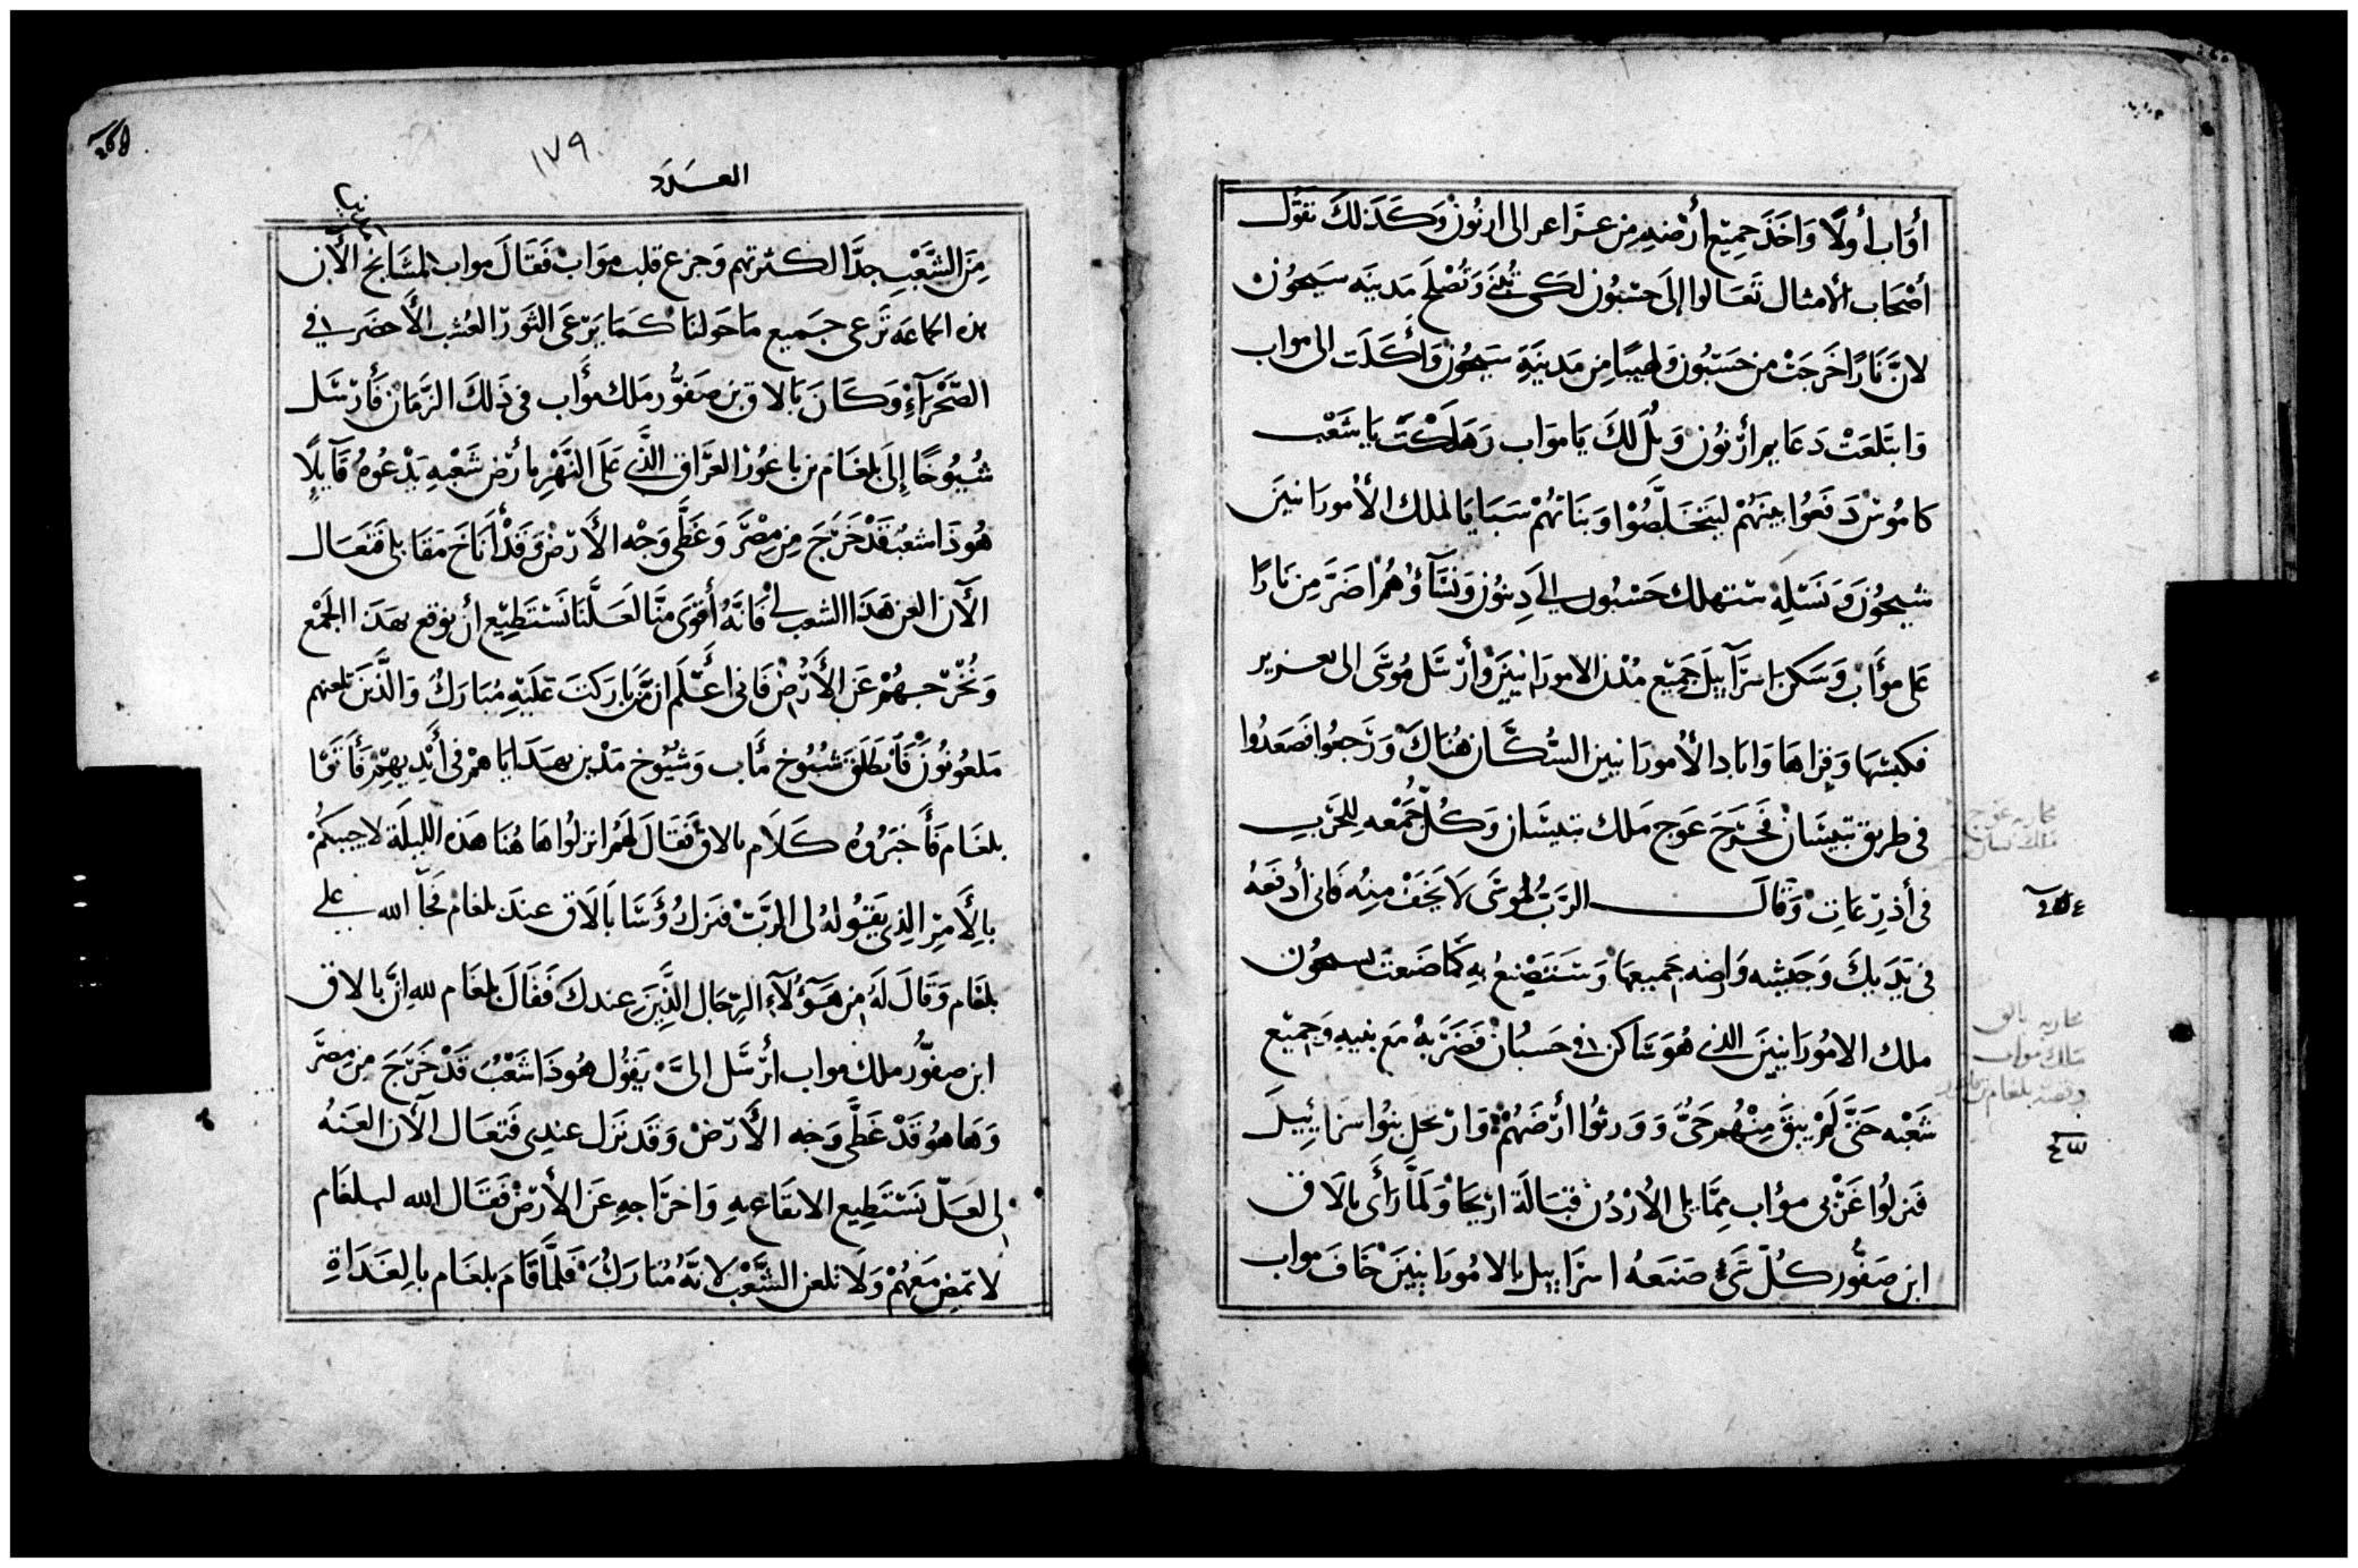 أوَّاب أولًا وَاخَذَ جميْع أرْضهِ من عراعر الى ارنُونْ وَكَذلكَ نقَول
أصْحَاب الأمثال تَعَالوا إلَى حشبُون لكي تُبْنَى وَتُصْلَح مَدينَه سَيحُونْ
لانَّ نَارًا خَرجَتْ من حَسْبُون وَلهيبًا مِن مَدينَةِ سَيحُونْ وَأكَلَت الى مواب
وَابتَلعَتْ دَعَايم أرْنُونْ وَيلُ لكَ يَا موَاب وَهَلَكْتَ يَا شَعْب
كاموْش دَفَعُوا بنيَهُمْ ليَتخَلَّصُوْا وَبنَاتهُمْ سَبَايَا لملك الأمورَانيينَ
سيحُونْ وَنَسْلِهْ ستهلك حَسْبُون إلى دِيبُون وَنسَآؤهُمْ اضرَّ مِن نَارًا
عَلى موأَابْ وَسَكنَ اسرَآييلَ جَميْع مُدْن الامورَانيينَ وَأرْسَل مُوسَى الى يعزير
فكبسَها وَقراهَا وَابَاد الأمورَانيين السُّكَّان هُنَاكَ وَرَجعُوا فصَعدُوا
فى طريق بتيسَانْ فخَرَجَ عَوج مَلك بتيسَان وَكُلّ جَمْعه للِحَرْبِ
فى أذرِعَاتِ وَقالَ الرَبُّ لموسَى لَا تخَفْ مِنهُ فانى أدفعَهُ
فى يَدَيكَ وَجَيشه وَارضه جَميعهَا وَسَتَصْنعُ بهِ كمَا صَنعتَ بسيحُون
ملك الامُورَانيينَ الذى هُوَ سَاكن فى حَسبُانْ فضَرَبهُ مَع بنيهِ وَجميْع
شَعْبه حَتَّى لَمْ يبقَ مِنْهُمْ حَىٌّ وَوَرثُوا أرْضَهُمْ وَارْتحل بنُوا اسرَاييلَ
فنزلُوا غَرْبى موُاب مِمَّا يلى الأرْدُن قبَالَة اريْحَا وَلمَّا رَأَى بالَاق
ابن صَفُّور كُلّ شَئ صَنعَهُ اسرَاييل بالامُورَانيينَ خَافَ مواب
محاربه عوج
ملك بيسان
محاربه بالاق
ملك مواب
وقصته بلعام بن باعور
١٧٩
العَدَد
مِنَ الشَّعْبِ جدًّا لكثرتهم وَجزع قلب موَابْ فَقَالَ مواب لمشَايخ الأن
هذه الجماعَه تَرعى جميع مَا حَولنَا كمَا يَرعَى الثوَر العُشب الأخضَر فى
الصَّحْرَآءِ وَكَانَ بَالاق بن صَفُّور مَلك موأَاب فى ذَلكَ الزَّمَانْ فأرْسَل
شُيُوخًا إلَى بلعَام بن بَاعُوْر العَرَّاف الذَّى عَلَى النَّهْرِ بأرْض شَعْبهِ يَدْعُوهُ قَآيلًا
هُوذَا شعبُ قَدْ خَرَجَ مِن مِصْرَ وَغَطَّى وَجْه الأَرْضْ وَقَدْ أنَاخَ مقَابلى فتعَال
الآن العن هَذَا الشعب لى فَانَّهُ أقوَى منَّا لعَلَّنَا نَسْتَطِيْع أن نوقع بهَذا الجَمْع
وَنُخْرجهُمْ عَن الأَرْضْ فَانى اعْلَم ان مَن بَاركتَ عَليْهِ مُبَاركُ وَالَّذينَ تلعنهم
مَلعُونُونَ فَانطَلَقَ شيُوخ مُأاب وَشيُوخ مَدْين بهدَايَاهمْ فى أيْديهِمْ فَأتَوْا
بلعَام فَأخبَرُوهُ كَلَام بالاقْ فَقَالَ لَهُمْ انزلُوا هَا هُنَا هَذه اللَيلَة لاجيبكُمْ
بالأَمِرْ الذِى يَقوُلهُ لى الرَبّ فنزل رُؤسَا بَالَاق عندَ بلعَام فجَآ الله على
بلعَام وَقَالَ لَهُ مِن هَؤُلَآء الرِجَال الذَّينَ عندكَ فَقَالَ بلعَام لله إنَّ بالاق
ابن صفُّور ملك مواب أرْسَل الىَّ يَقوُل هُوذَا شَعْبُ قَدْ خَرَجَ مِن مِصْرَ
وَهَاهو قَدْ غَطَّى وَجه الأَرْضْ وَقَد نَزل عندِى فَتعَال الآن العَنهُ
لى لعَلّ نَسْتَطِيع الايقاع بهِ وَاخرَاجهِ عَن الأرْضْ فَقَال الله لبلعَام
لَا تمَض مَعهُمْ وَلَا تلعن الشَّعْب لَانَّهُ مُبَارَكُ فَلمَّا قَامَ بلعَام بالغَدَاةِ